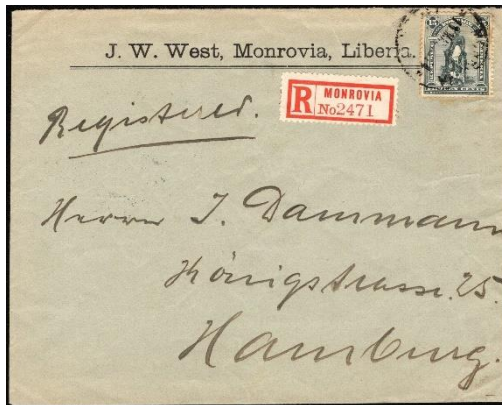 J. W. West, Monrovia, Liberia.
R MONROVIA
No2471
Registered.
Herrn I. Dammann
Königstrasse. 25.
Hamburg.